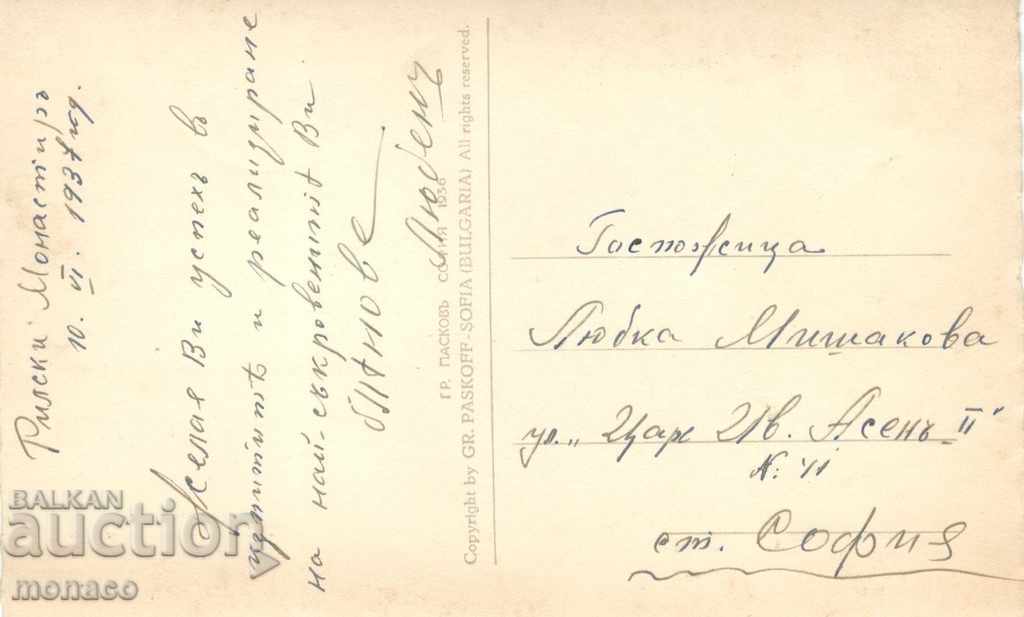 Рилски Монастиръ
10. VI. 1937 год.
Желая Ви успехъ въ
изпититѣ и реализиране
на най-съкровенитѣ Ви
блѣнове
Любенъ
ГР. ПАСКОВЪ СОФИЯ 1936
Copyright by GR. PASKOFF-SOFIA (BULGARIA) All rights reserved.
Госпожица
Любка Мишакова
ул. „Царь Ив. Асенъ II"
№: 41
ст. София
BALKAN
auction
monaco